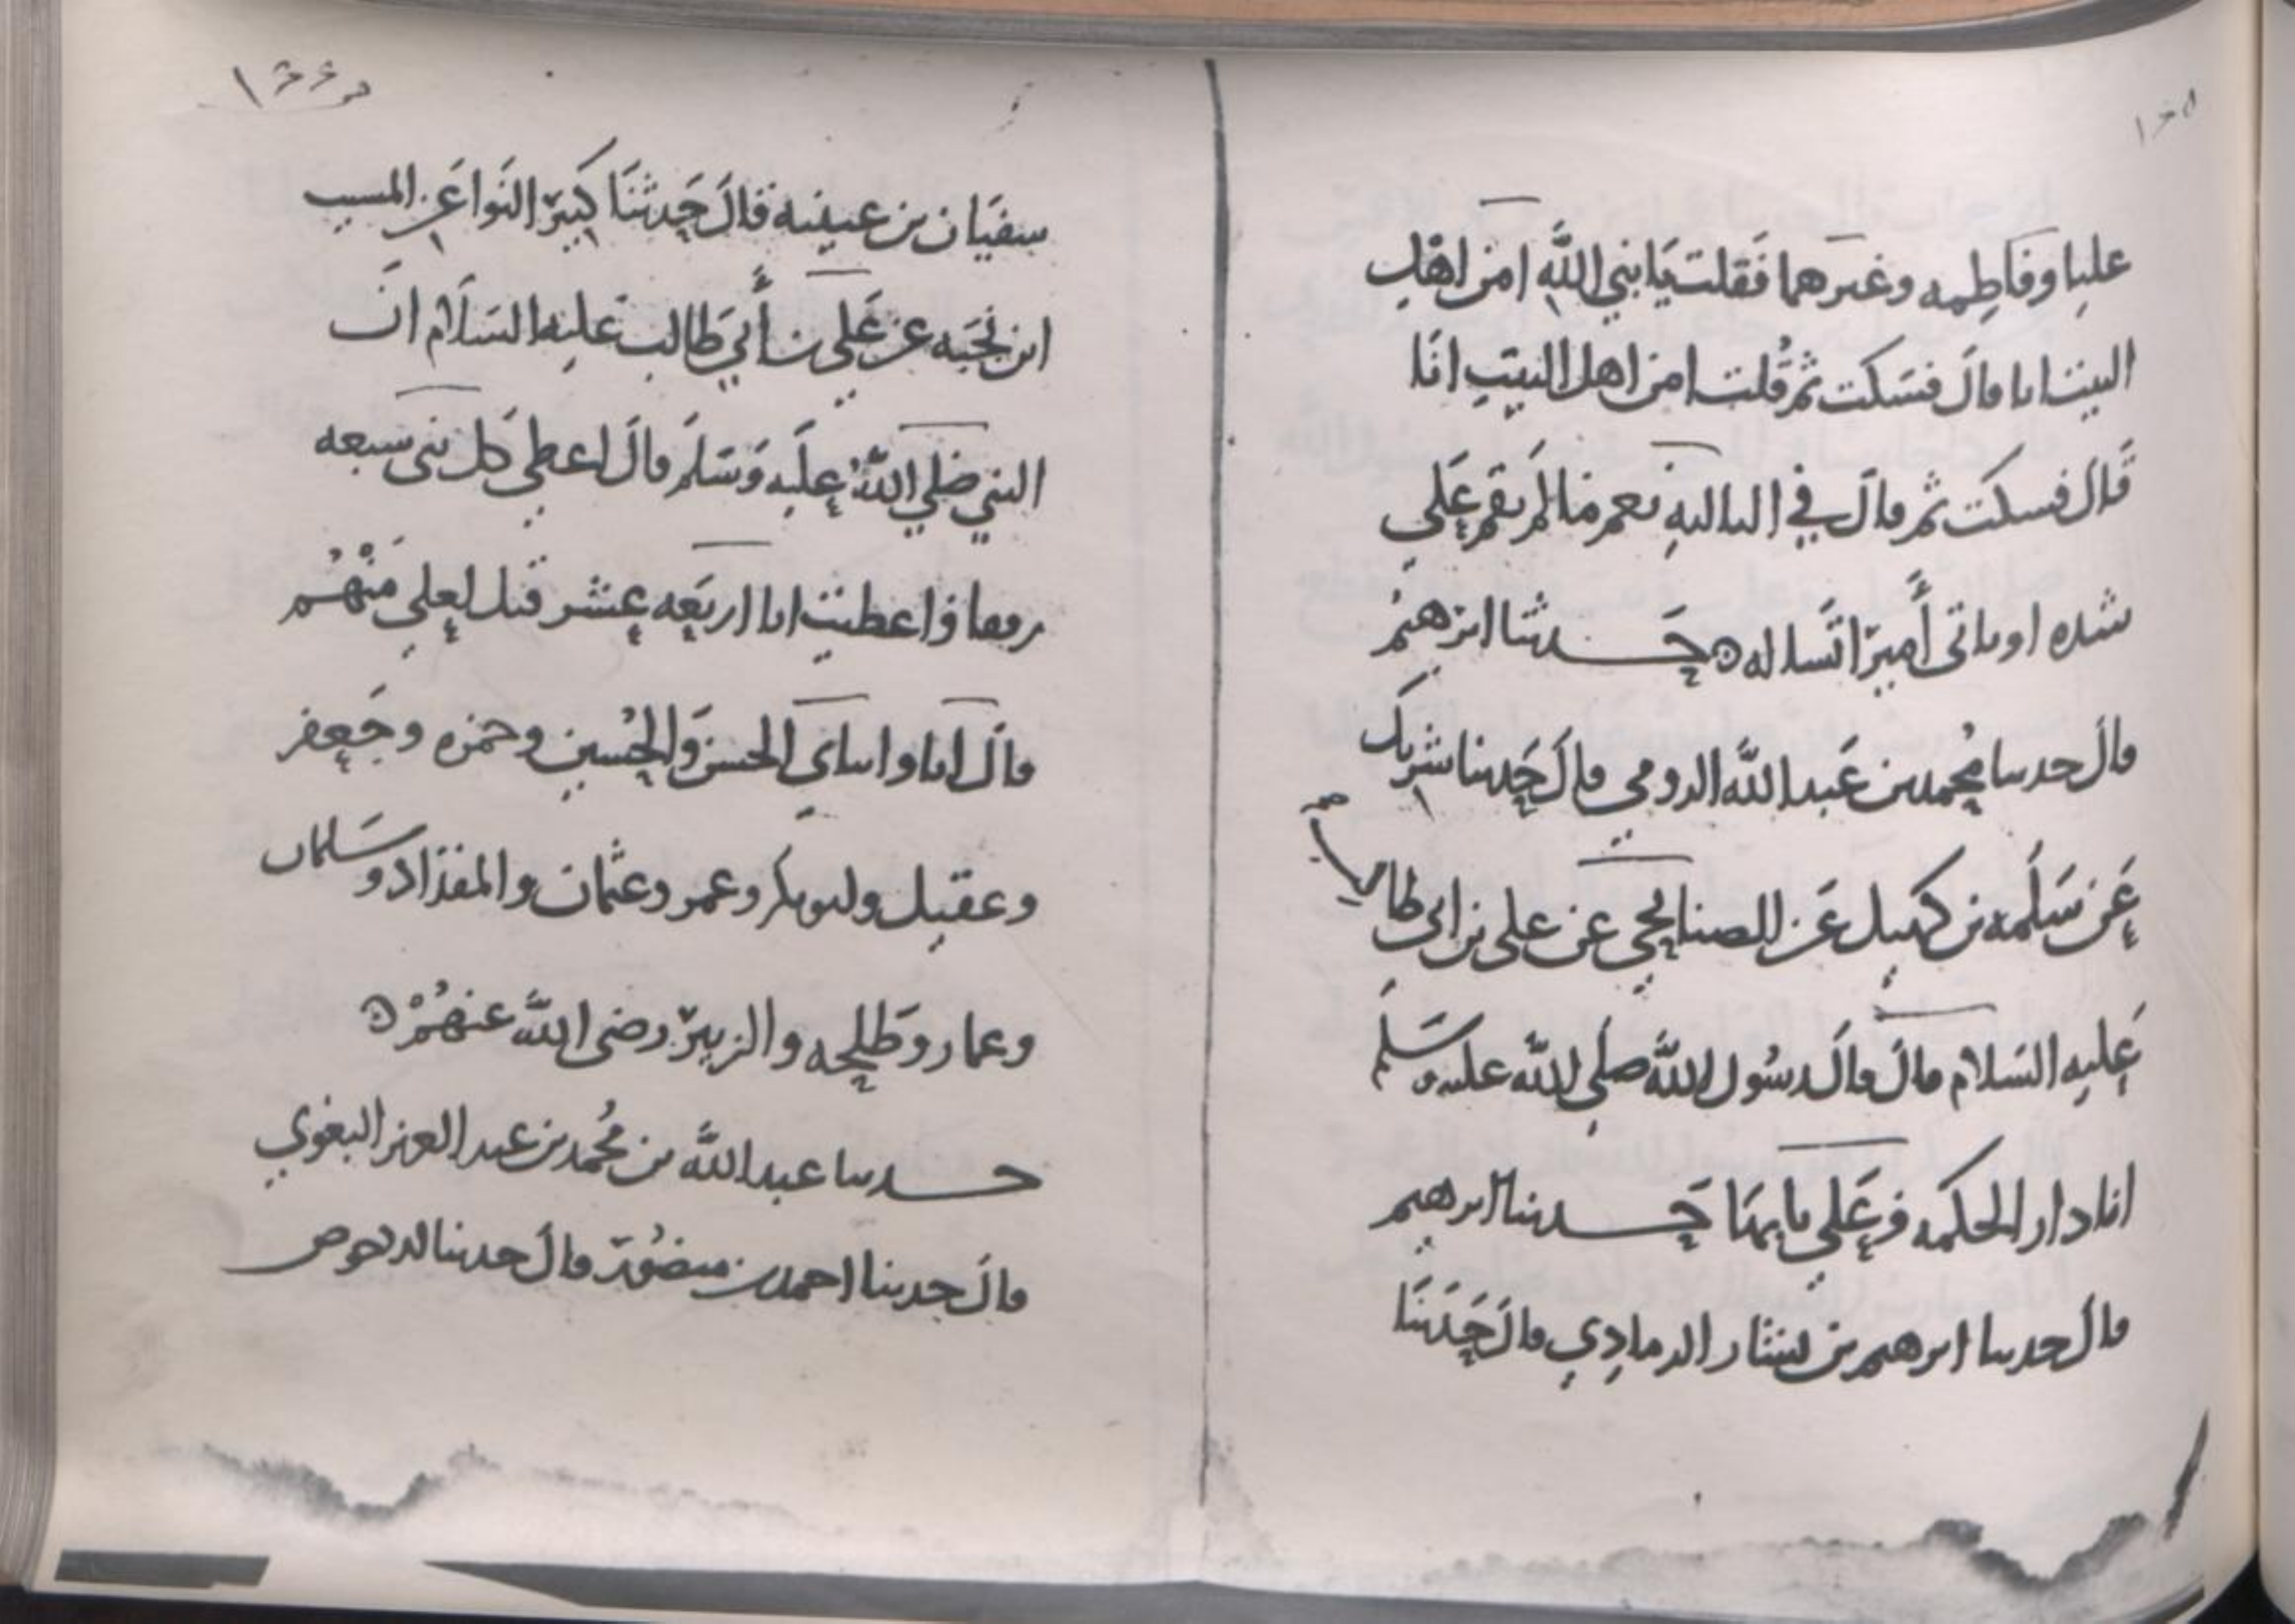 عليا وفاطمه وغيرهما فَقلت يَا نبي اللَّه امن اهْل
البيت انا قالَ فسَكت ثم قُلت امن اهل البيتِ انَا
قَال فسكت ثم قالَ في الثالثهِ نعم مَا لَم يقم عَلي
شده او ياتى أَميرًا تَساله حَدثنا ابرهيمُ
قال حدثنا مُحمد بن عَبد اللَّه الرومي قالَ حَدثنا شَريك
عَن سَلَمه بن كهيل عَن الصنابحي عن علي بن ابي طالب
عَليه السَلام قالَ قالَ رسُول اللَّه صلي اللَّه عليه وسَلم
انا دار الحكمه وعَلي بابهَا حَدثنا ابرهيم
قال حدثنا ابرهيم بن بشار الرمادِي قالَ حَدَثنَا
١٤٤
سفيَان بن عيينه قَالَ حَدثنَا كَثيرّ النَوا عَن المسيب
ابن نَجَبَه عن عَلي بن أَبي طَالب عليه السَلَام انَ
النبي صَلي اللَّهُ علَيه وَسَلمَ قالَ اعطي كل نبى سبعه
رفقا واعطيت انا اربَعه عشر قيل لعلي مَنْ هُم
قالَ انا وابناي الحسن وَالحُسين وحمزه وجَعفر
وعقيل وابو بكر وعمر وعثمان والمقداد وسَلمان
وعمار وطَلحه والزبيرّ رضى اللَّه عنهُمْ
حدثنا عبد اللَّه بن مُحمد بن عبد العزيز البغوي
قالَ حدثنا احمد بن منصُور قالَ حدثنا الاحوص